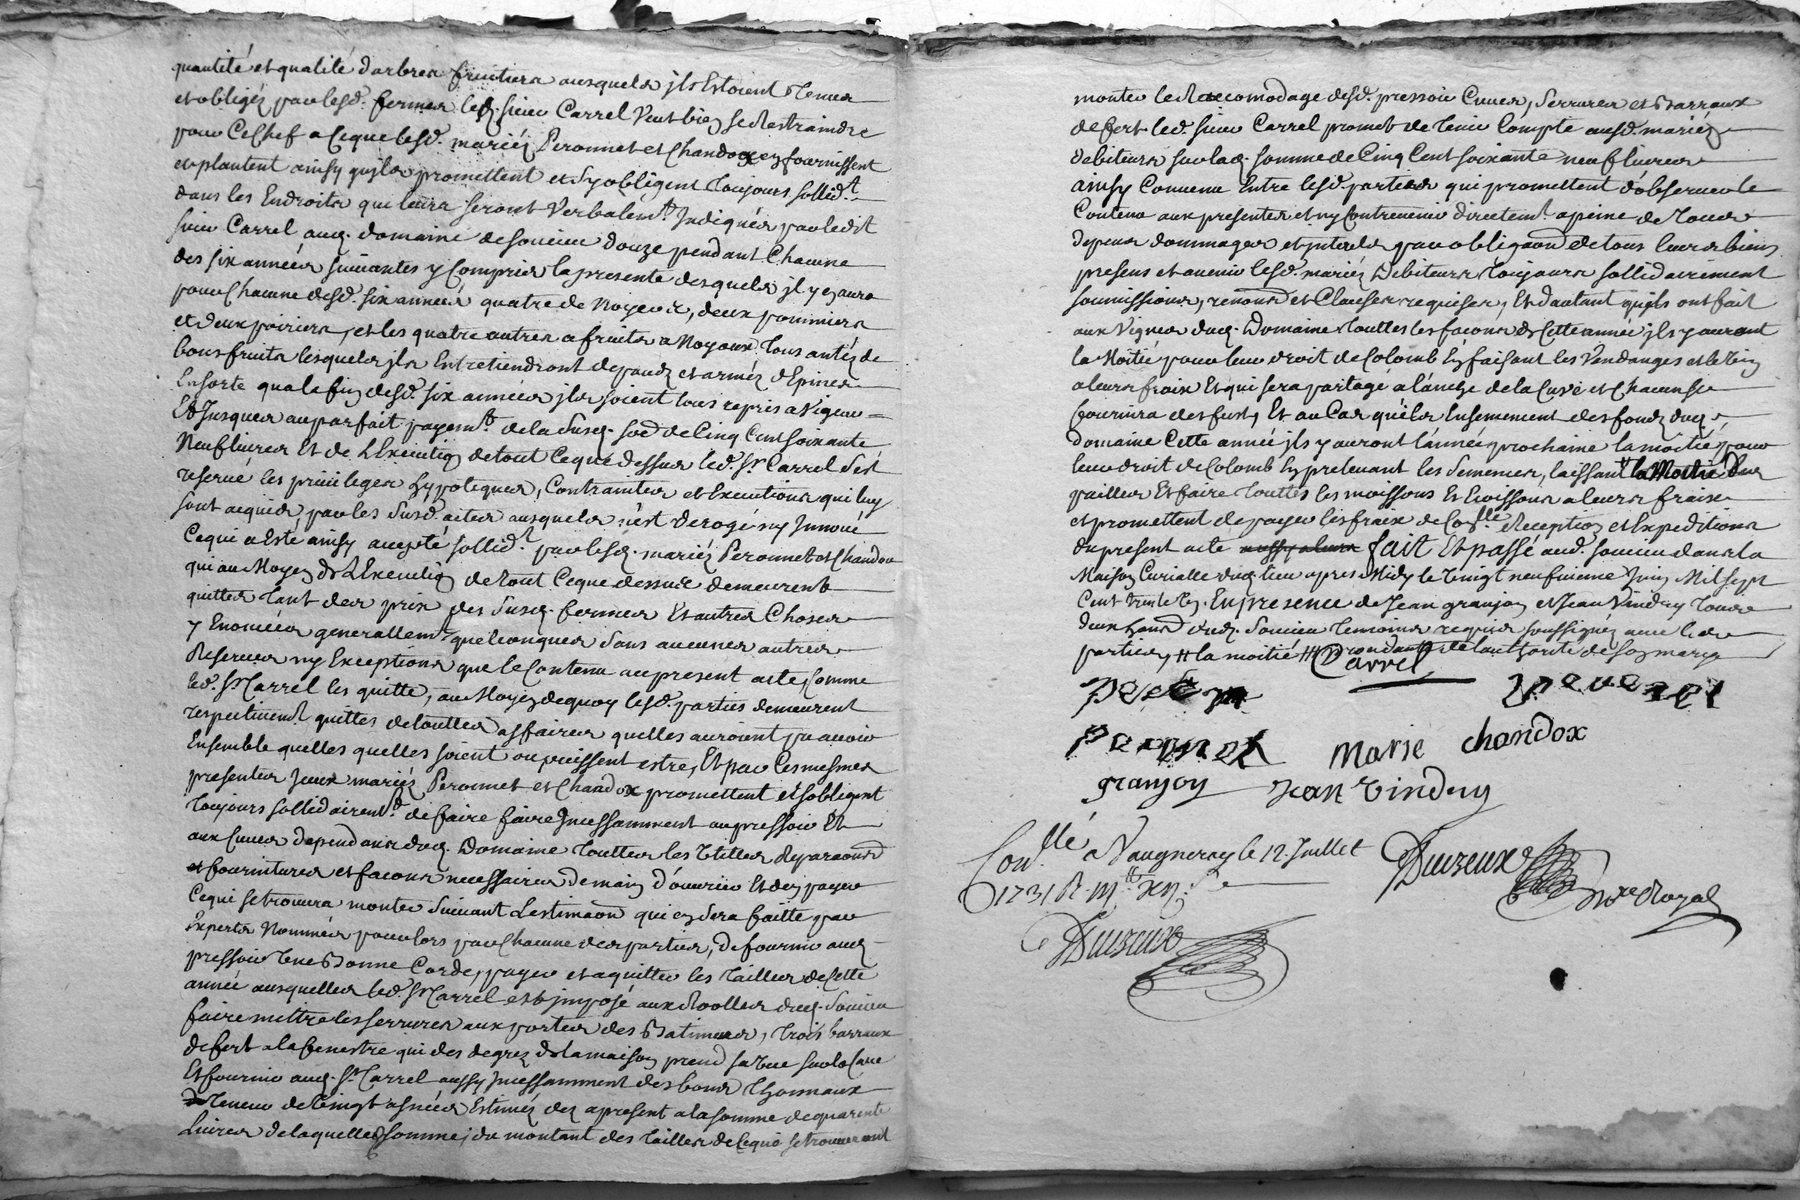 quantité et qualité darbres fruitiers ausquels jls Estoient Tenus
et obligéz par lesd. fermes led. sieur Carrel Veut bien se Restraindre
pour Ce Chef a Ceque lesd. mariéz Peronnet et Chandox en fournissent
et plantent ainsy quils promettent et sy obligent Toujours sollid.t
dans les Endroits qui leurs seront Verbalem.t Indiquéz par ledit
sieur Carrel aud. domaine de soucieu douze pendant Chacune
des six années suivantes y Compris la presente desquels jl y en aura
pour Chacune desd. six années quatre de Noyers, deux pommiers
et deux poiriers, et les quatre autres a fruits a Noyaux Tous antéz de
bons fruits lesquels jls Entretiendront de paux et arméz dEpines
Ensorte qua la fin desd. six années jls soient tous repris a Vigeur
Et Jusques au parfait payem.t de la susd. so.e de Cinq Cent soixante
Neuf livres Et de LExecution de tout Ceque dessus led. Sr Carrel s'est
reservé les privileges hypoteques, Contraintes et Executions qui luy
sont acquis par les susd. actes ausquels n'est derogé ny Innové
Cequi a Esté ainsy accepté sollid.t par lesd. mariéz Peronnet et Chandox
qui au Moyen de LExecution de tout Ceque dessus demeurent
quittes tant des prix des susd. fermes Et autres Choses
y Enoncées generallem.t quelconques sans aucunes autres
Reserves ny Exceptions que le Contenu au present acte, Comme
led. Sr Carrel les quitte, au Moyen dequoy lesd. parties demeurent
respectivem.t quittes de touttes affaires quelles auroient pu avoir
Ensemble quelles quelles soient ou puissent estre, Et par Ces mesmes
presentes Jceux mariéz Peronnet et Chandox promettent et sobligent
Toujours sollidairem.t de faire faire Incessamment au pressoir Et
aux Cuves dependans dud. Domaine Touttes les Utilles Reparaons
et fournitures et facons necessaires demain d'ouvrier Et den payer
Cequi setrouvera monter suivant Lestimaon qui en sera faitte par
Experts Nomméz pour lors par Chacune des parties, de fournir aud.
pressoir Une Bonne Corde, payer et aquitter les Tailles de Cette
année ausquelles led. Sr Carrel est jmposé aux Roolles dud. Soucieu
faire mettre les serrures aux portes des Batimens, Trois barraux
de fert a la fenestre qui des degrez de la maison prend sa Vue sur la Cave
Et fournir aud. Sr Carrel aussy Incessamment des bons Thonnaux
de Teneur de Vingt asnées Estiméz dez apresent a la somme de quarente
Livres de laquelle somme, du montant des Tailles de Cequi setrouveront
monter le Racomodage desd. pressoir Cuves, serrures et Barraux
de fert led. sieur Carrel promet de Tenir Compte ausd. mariéz
debiteurs sur lad. somme de Cinq Cent soixante neuf livres
ainsy Convenu Entre lesd. parties qui promettent d'observer le
Contenu aux presentes et ny Contrevenir directem.t a peine de Tous
depens dommages et jnterests par obligaon de tous leurs biens
presens et avenir lesd. mariéz Debiteurs Toujours sollidairement
soumissions, renon.ons et Clauses requises, Et dautant quils ont fait
aux Vignes dud. Domaine Touttes les facons de Cette année jls y auront
la Moitié pour leur droit de Colomb En faisant les Vendanges et le Vin
a leurs fraix Et qui sera partagé a l'anche de la Cuve et Chacun se
fournira des futs, Et au Cas quils Ensemencent des fondz dud.
domaine Cette année jls y auront l'année prochaine la moitié pour
leur droit de Colomb En prelevant les semences, laissant la Moitié des
pailles Et faire Touttes les moissons Et Evoissons a leurs fraix
et promettent de payer les fraix de Con.lle Reception et Expeditions
du present acte aussy a leurs fait Et passé aud. soucieu dans la
Maison Curialle dud. lieu apres Midy le Vingt neufvieme Juin Mil sept
Cent trente Un. En presence de Jean granjon et Jean Vindry Tous
deux habt. dud. Soucieu Temoins requis soussignéz avec les
parties, # la moitié # procedante de l'authorité de son mary
Carrel
Peronnet Marie chandox
granjon Jean Vindry
Con.llé a Vaugneray le 12. Juillet
1731 R. m.tt xn. s.
Duzeux
Duzeux
No.re Royal